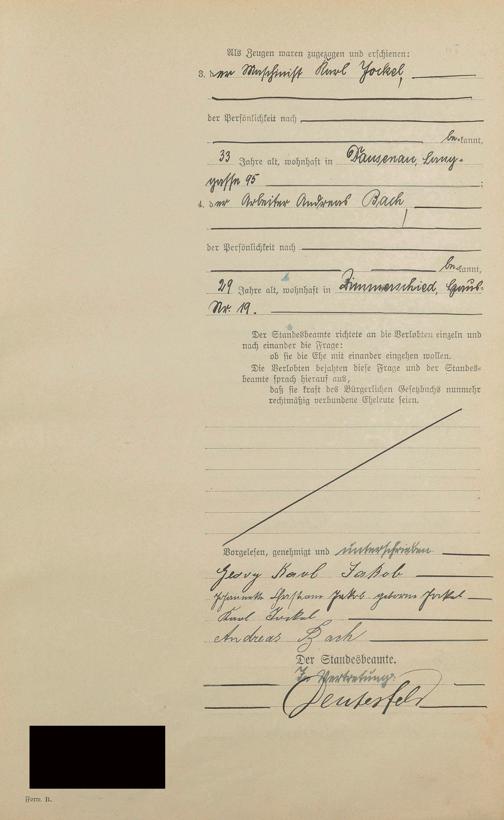 Als Zeugen waren zugezogen und erschienen:
3. der Maschinist Karl Jockel,
der Persönlichkeit nach
bekannt,
33 Jahre alt, wohnhaft in Dausenau, Lang-
gasse 95
4. der Arbeiter Andreas Bach,
der Persönlichkeit nach
bekannt,
29 Jahre alt, wohnhaft in Zimmerschied, Haus-
Nr. 19.
Der Standesbeamte richtete an die Verlobten einzeln und
nach einander die Frage:
ob sie die Ehe mit einander eingehen wollen.
Die Verlobten bejahten diese Frage und der Standes-
beamte sprach hierauf aus,
daß sie kraft des Bürgerlichen Gesetzbuchs nunmehr
rechtmäßig verbundene Eheleute seien.
Vorgelesen, genehmigt und unterschrieben
Georg Karl Jakob
Jakob geborene Jockel
Karl Jockel
Andreas Bach
Der Standesbeamte.
In Vertretung:
Form. B.